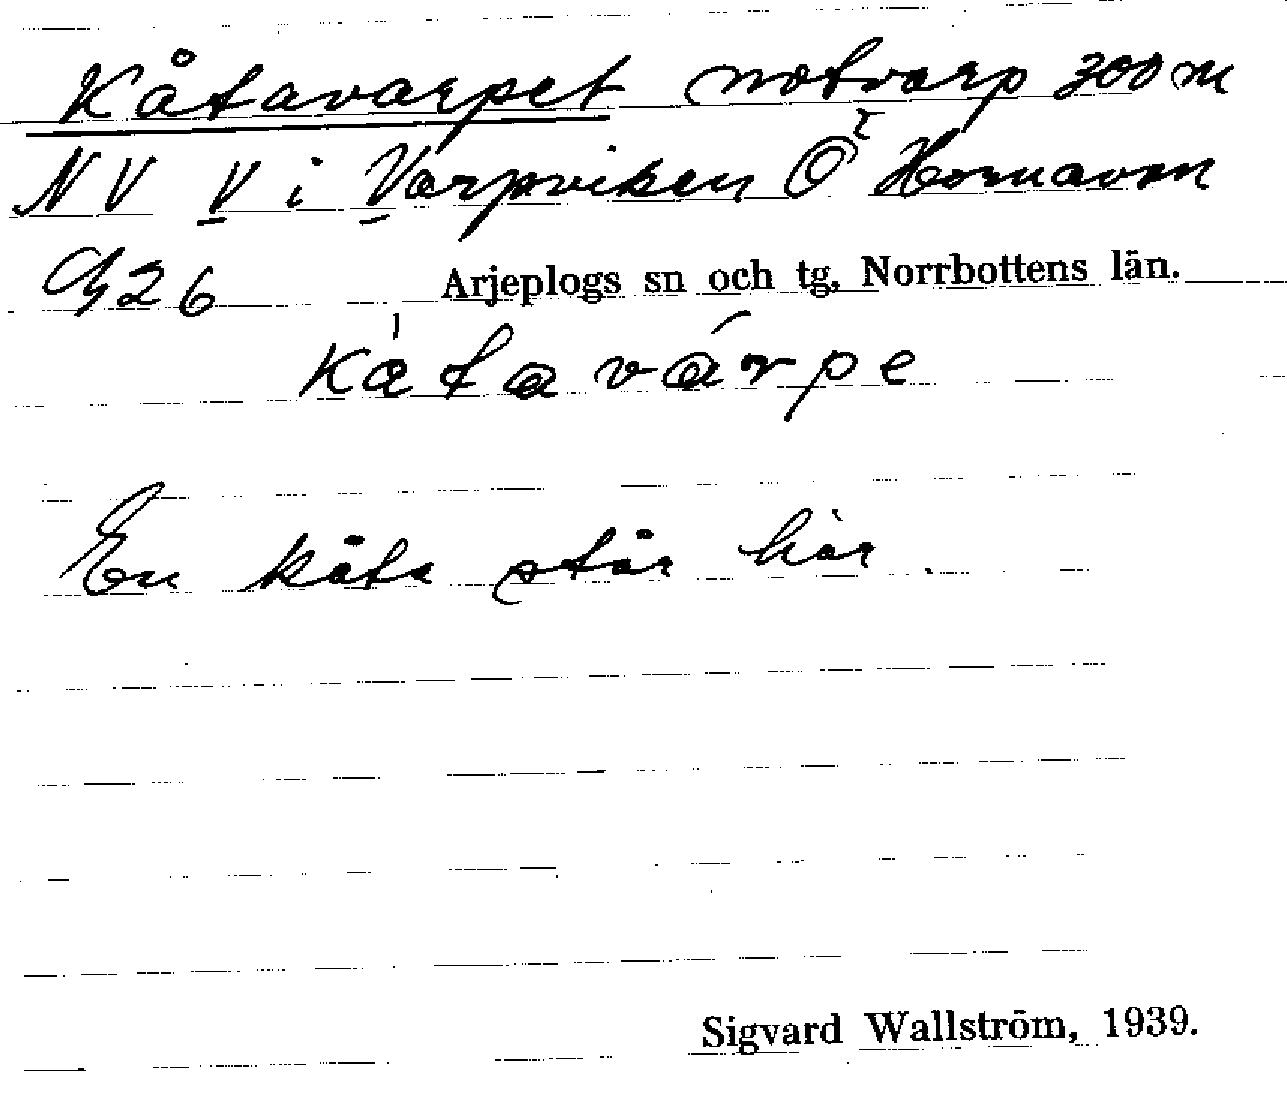 Kåtavarpet notvarp 300 m
NV V i Varpviken Ö Hornavan
926 Arjeplogs sn och tg, Norrbottens län.
kåtavárpe
En kåta står här.
Sigvard Wallström, 1939.